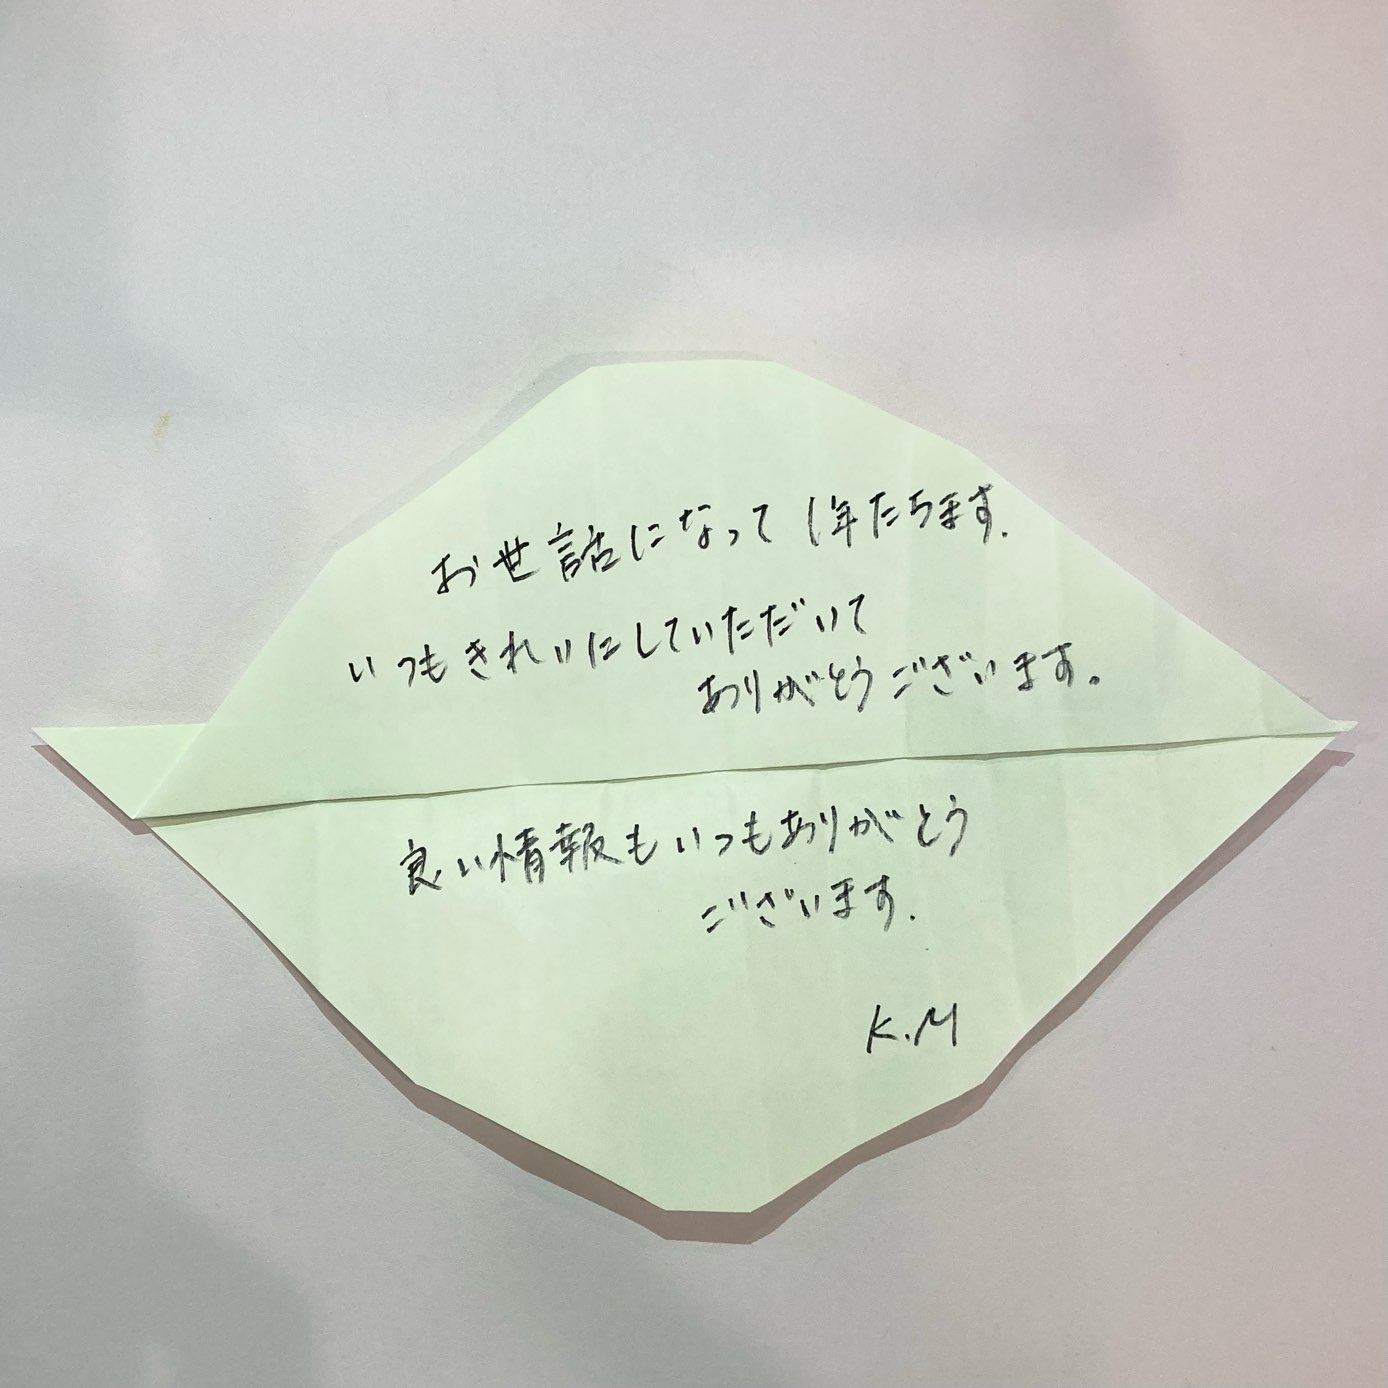 お世話になって1年たちます.
いつもきれいにしていただいて
ありがとうございます。
良い情報もいつもありがとう
ございます.
K.M